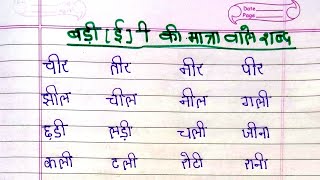 Date
Page
बड़ी (ई) ी की मात्रा वाले शब्द
चीर तीर नीर पीर
झील चील नील गली
छड़ी लड़ी चली जीना
कली टली रोटी रानी